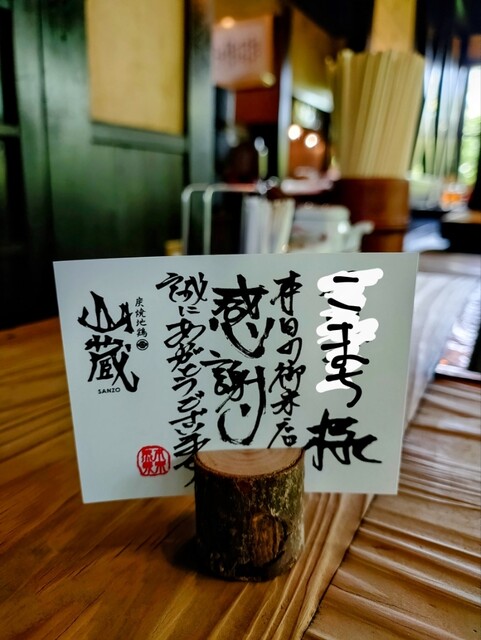 こまち様
本日の御来店
感謝り
誠にありがとうございます
炭焼地鶏
山蔵
SANZO